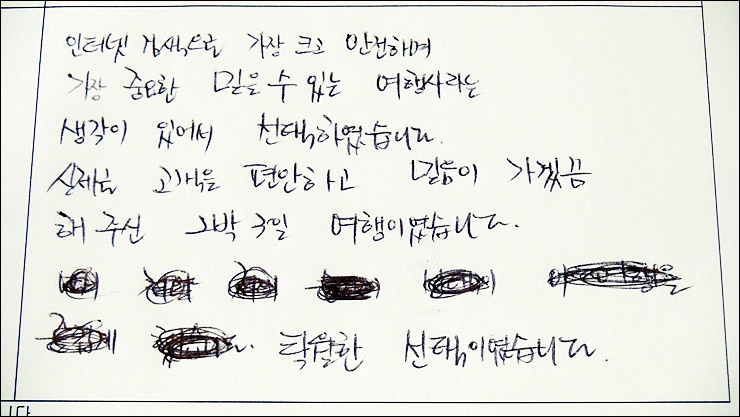 인터넷 검색으로 가장 크고 안전하며
가장 중요한 믿을 수 있는 여행사라는
생각이 있어서 선택하였습니다.
실제로 고객을 편안하고 믿음이 가겠끔
해 주신 2박 3일 여행이였습니다.
탁월한 선택이였습니다.
니다